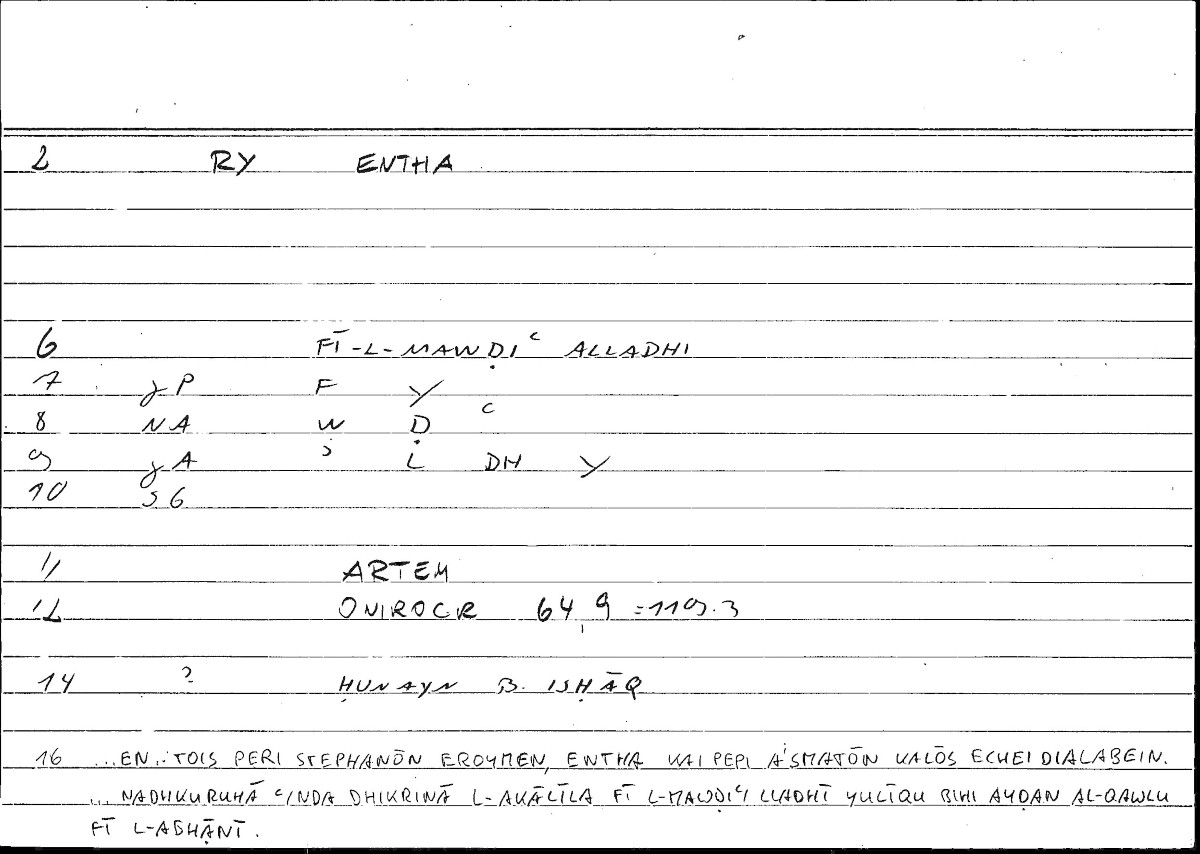 2 RY ENTHA
6 FĪ-L-MAWḌIᶜ ALLADHI
7 gP F Y
8 NA W Ḍ ᶜ
9 gA ʾ L DH Y
10 SG
11 ARTEM
12 ONIROCR 64,9 =119.3
14 ? ḤUNAYN B. ISḤĀQ
16 ...EN TOIS PERI STEPHANŌN EROYMEN, ENTHA KAI PEPI ÁSMATŌN KALŌS ECHEI DIALABEIN.
... NADHKURUHĀ ᶜINDA DHIKRINĀ L-AKĀLĪLA FĪ L-MAWḌIᶜI LLADHĪ YULĪQU BIHI AYḌAN AL-QAWLU
FĪ L-AGHĀNĪ.